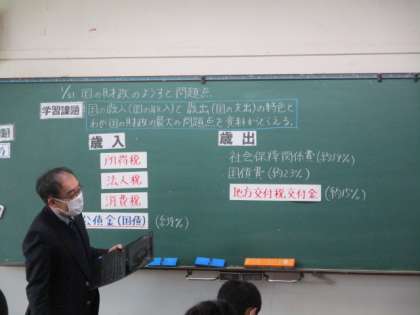 1/21 国の財政のようすと問題点
学習課題
国の歳入(国の収入)と歳出(国の支出)の特色と
わが国の財政の最大の問題点を資料からとらえる。
歳入
所得税
法人税
消費税
公債金(国債)
歳出
社会保障関係費
国債費(約23%)
地方交付税交付金(約15%)